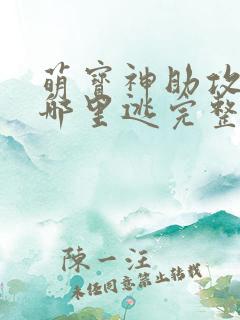 萌宝神助攻
哪里逃完整
陈一汪
未经同意禁止转载